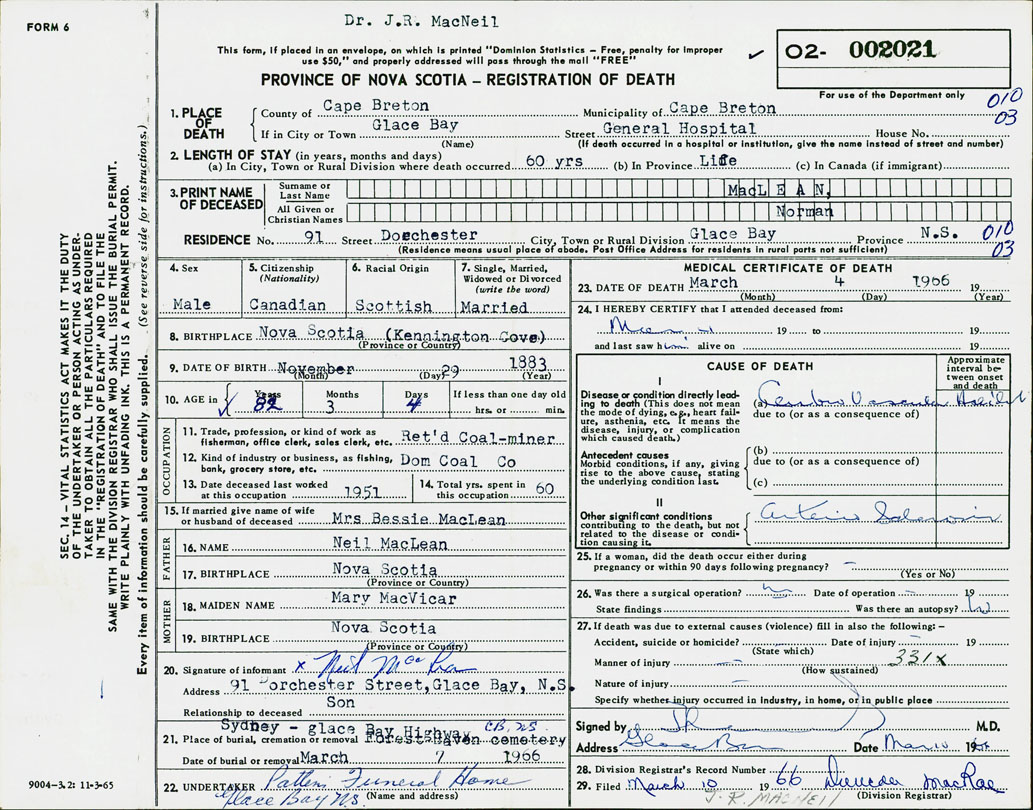 Dr. J.R. MacNeil
FORM 6
This form, if placed in an envelope, on which is printed "Dominion Statistics – Free, penalty for improper
use $50," and properly addressed will pass through the mail "FREE"
✓ O2- 002021
PROVINCE OF NOVA SCOTIA – REGISTRATION OF DEATH
For use of the Department only
010
03
1. PLACE OF DEATH County of Cape Breton Municipality of Cape Breton
If in City or Town Glace Bay Street General Hospital House No.
(Name) (If death occurred in a hospital or institution, give the name instead of street and number)
2. LENGTH OF STAY (in years, months and days)
(a) In City, Town or Rural Division where death occurred 60 yrs (b) In Province Life (c) In Canada (if immigrant)
3. PRINT NAME OF DECEASED Surname or Last Name MacLEAN,
All Given or Christian Names Norman
RESIDENCE No. 91 Street Dorchester City, Town or Rural Division Glace Bay Province N.S. 010
03
(Residence means usual place of abode. Post Office Address for residents in rural parts not sufficient)
4. Sex Male
5. Citizenship (Nationality) Canadian
6. Racial Origin Scottish
7. Single, Married, Widowed or Divorced (write the word) Married
8. BIRTHPLACE Nova Scotia (Kennington Cove)
(Province or Country)
9. DATE OF BIRTH November 29 1883
(Month) (Day) (Year)
10. AGE in ✓ Years 82 Months 3 Days 4 If less than one day old
hrs. or min.
OCCUPATION
11. Trade, profession, or kind of work as fisherman, office clerk, sales clerk, etc. Ret'd Coal-miner
12. Kind of industry or business, as fishing, bank, grocery store, etc. Dom Coal Co
13. Date deceased last worked at this occupation 1951
14. Total yrs. spent in this occupation 60
15. If married give name of wife or husband of deceased Mrs Bessie MacLean
FATHER
16. NAME Neil MacLean
17. BIRTHPLACE Nova Scotia
(Province or Country)
MOTHER
18. MAIDEN NAME Mary MacVicar
19. BIRTHPLACE Nova Scotia
(Province or Country)
20. Signature of informant x Neil
Address 91 Dorchester Street, Glace Bay, N.S.
Relationship to deceased Son
Sydney - glace Bay Highway CB, NS
21. Place of burial, cremation or removal Forest Haven cemetery
Date of burial or removal March 7 1966
22. UNDERTAKER Patten Funeral Home
Glace Bay N.S. (Name and address)
MEDICAL CERTIFICATE OF DEATH
23. DATE OF DEATH March 4 1966 19
(Month) (Day) (Year)
24. I HEREBY CERTIFY that I attended deceased from:
19 to 19
and last saw him alive on 19
CAUSE OF DEATH
Approximate interval between onset and death
I
Disease or condition directly leading to death (This does not mean the mode of dying, e.g., heart failure, asthenia, etc. It means the disease, injury, or complication which caused death.)
(a) Cerebro Vascular Accident
due to (or as a consequence of)
Antecedent causes
Morbid conditions, if any, giving rise to the above cause, stating the underlying condition last.
(b)
due to (or as a consequence of)
(c)
II
Other significant conditions contributing to the death, but not related to the disease or condition causing it.
Arterio Sclerosis
25. If a woman, did the death occur either during pregnancy or within 90 days following pregnancy? –
(Yes or No)
26. Was there a surgical operation? Date of operation – 19
State findings Was there an autopsy?
27. If death was due to external causes (violence) fill in also the following: –
Accident, suicide or homicide? Date of injury – 19
(State which)
Manner of injury – 331X
(How sustained)
Nature of injury –
Specify whether injury occurred in industry, in home, or in public place
Signed by M.D.
Address Glace Bay Date Mar 10 1966
28. Division Registrar's Record Number 66
29. Filed March 10 19 66 Duncan MacRae
J.R. MACNEIL (Division Registrar)
SEC. 14 – VITAL STATISTICS ACT MAKES IT THE DUTY
OF THE UNDERTAKER OR PERSON ACTING AS UNDER-
TAKER TO OBTAIN ALL THE PARTICULARS REQUIRED
IN THE "REGISTRATION OF DEATH" AND TO FILE THE
SAME WITH THE DIVISION REGISTRAR WHO SHALL ISSUE THE BURIAL PERMIT.
WRITE PLAINLY WITH UNFADING INK. THIS IS A PERMANENT RECORD.
Every item of information should be carefully supplied. (See reverse side for instructions.)
9004-3.2: 11-3-65